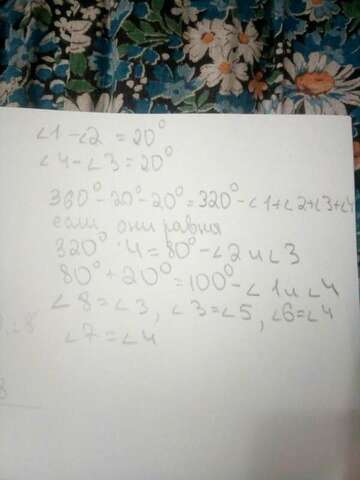 ∠1-∠2=20°
∠4-∠3=20°
360°-20°-20°=320°-∠1+∠2+∠3+∠4
если они равня
320°:4=80°-∠2и∠3
80°+20°=100°-∠1и∠4
∠8=∠3, ∠3=∠5, ∠6=∠4
∠7=∠4